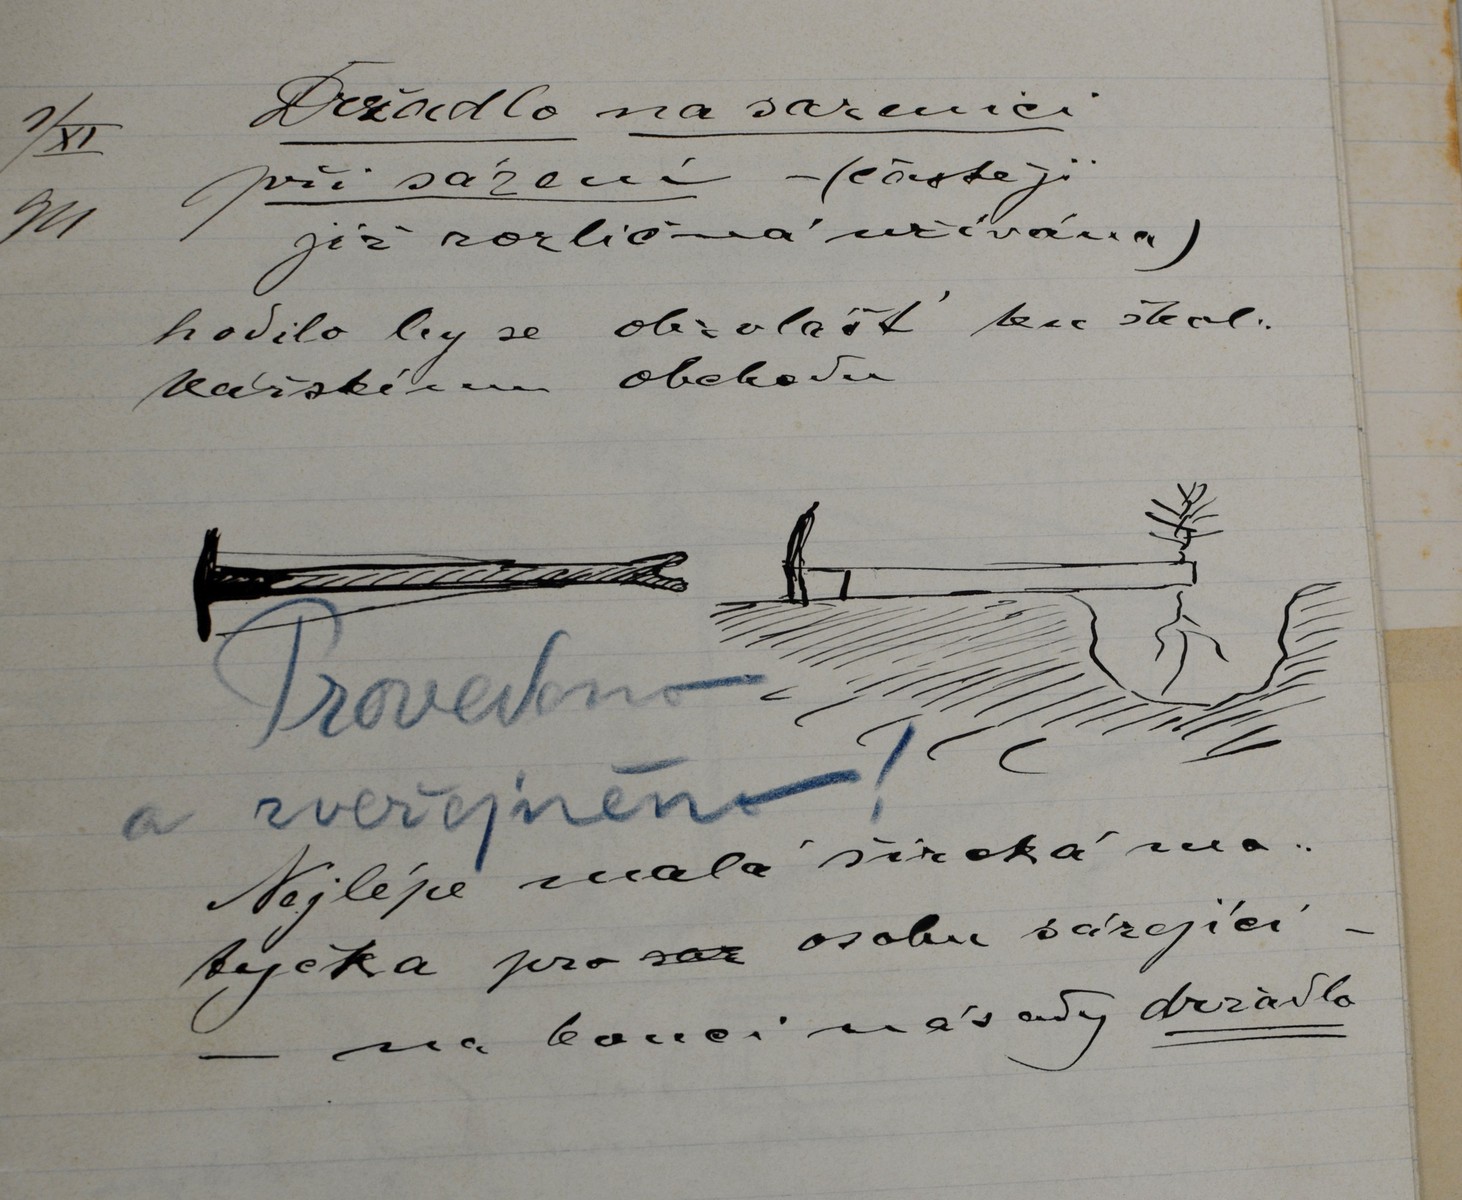 7/XI
911
Držadlo na sazenici
při sázení – (častěji
již rozličná užívána)
hodilo by se obzvlášť ku škol-
kářskému obchodu
Provedeno
a zveřejněno!
Nejlépe malá široká mo-
tyčka pro saz osobu sázející –
— na konci násady držadlo